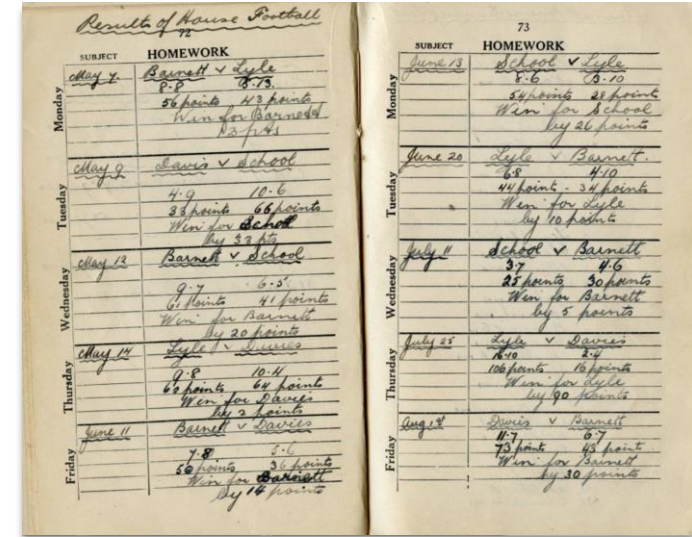 Results of House Football
72
SUBJECT HOMEWORK
Monday
May 7 Barnett v Lyle
8.8 5.13
56 points 43 points
Win for Barnett
13 pts
Tuesday
May 9 Davis v School
4.9 10.6
33 points 66 points
Win for School
by 33 pts
Wednesday
May 12 Barnett v School
9.7 6.5
61 points 41 points
Win for Barnett
by 20 points
Thursday
May 14 Lyle v Davies
9.8 10.4
62 points 64 points
Win for Davies
by 2 points
Friday
June 11 Barnett v Davies
7.8 5.6
50 points 36 points
Win for Barnett
by 14 points
73
SUBJECT HOMEWORK
Monday
June 13 School v Lyle
8.6 3.10
54 points 28 points
Win for School
by 26 points
Tuesday
June 20 Lyle v Barnett.
6.8 4.10
44 point - 34 points
Win for Lyle
by 10 points
Wednesday
July 11 School v Barnett
3.7 4.6
25 points 30 points
Win for Barnett
by 5 points
Thursday
July 25 Lyle v Davies
16.10 2.4
106 points 16 points
Win for Lyle
by 90 points
Friday
Aug 1st Davies v Barnett
11.7 6.7
73 points 43 points
Win for Barnett
by 30 points